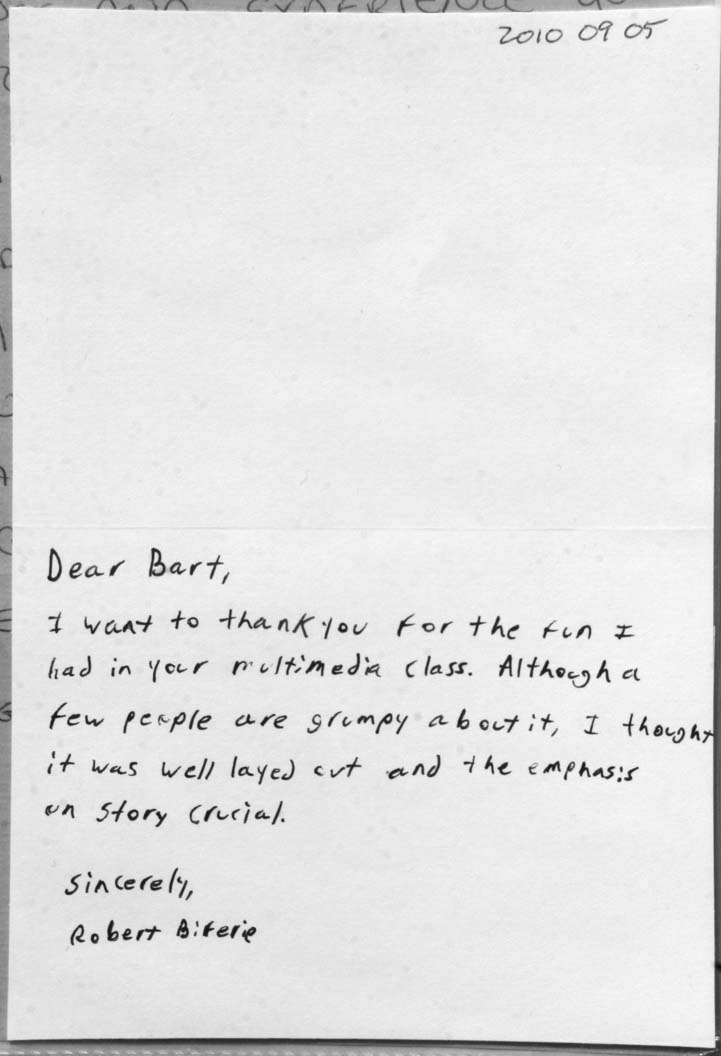 2010 09 05
Dear Bart,
I want to thank you for the fun I
had in your multimedia class. Although a
few people are grumpy about it, I thought
it was well layed out and the emphasis
on story crucial.
Sincerely,
Robert